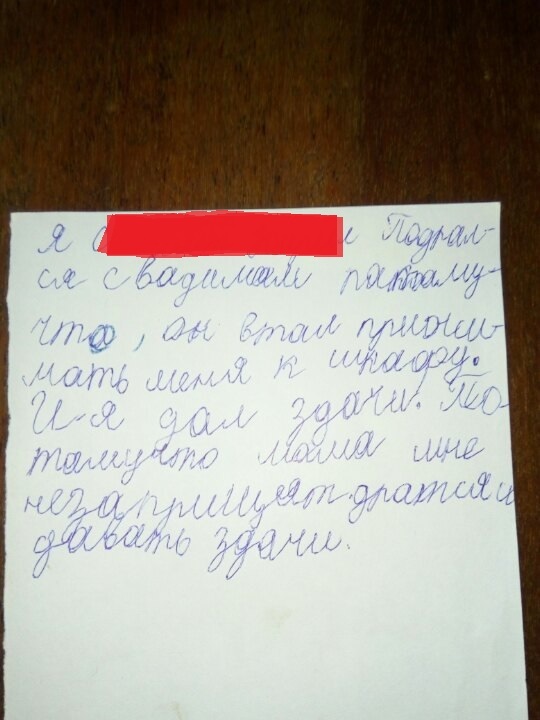 Я с л Подрал-
ся с вадимам потаму-
что, он втал прижи-
мать меня к шкафу.
И-я дал здачи. По-
тамучто мама мне
незаприщяят дратся и
давать здачи.